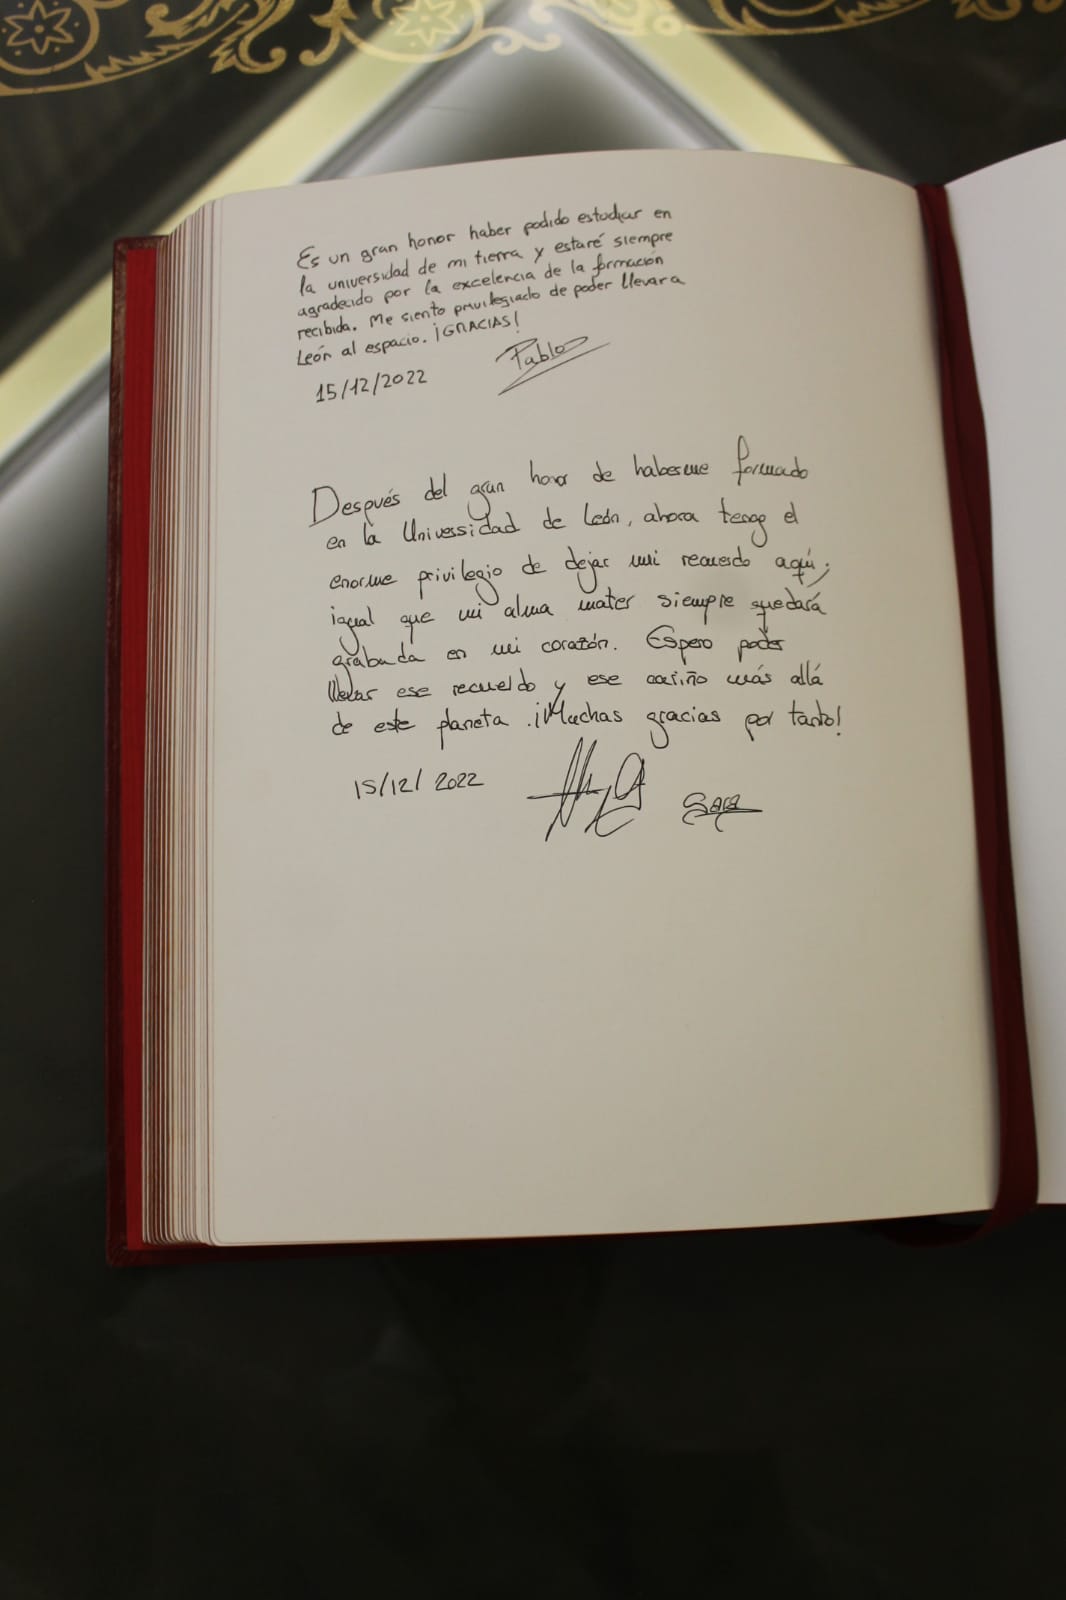 Es un gran honor haber podido estudiar en
la universidad de mi tierra y estaré siempre
agradecido por la excelencia de la formación
recibida. Me siento privilegiado de poder llevar a
León al espacio. ¡GRACIAS!
Pablo
15/12/2022
Después del gran honor de haberme formado
en la Universidad de León, ahora tengo el
enorme privilegio de dejar mi recuerdo aquí;
igual que mi alma mater siempre quedará
grabada en mi corazón. Espero poder
llevar ese recuerdo y ese cariño más allá
de este planeta. ¡Muchas gracias por tanto!
15/12/2022
Sara